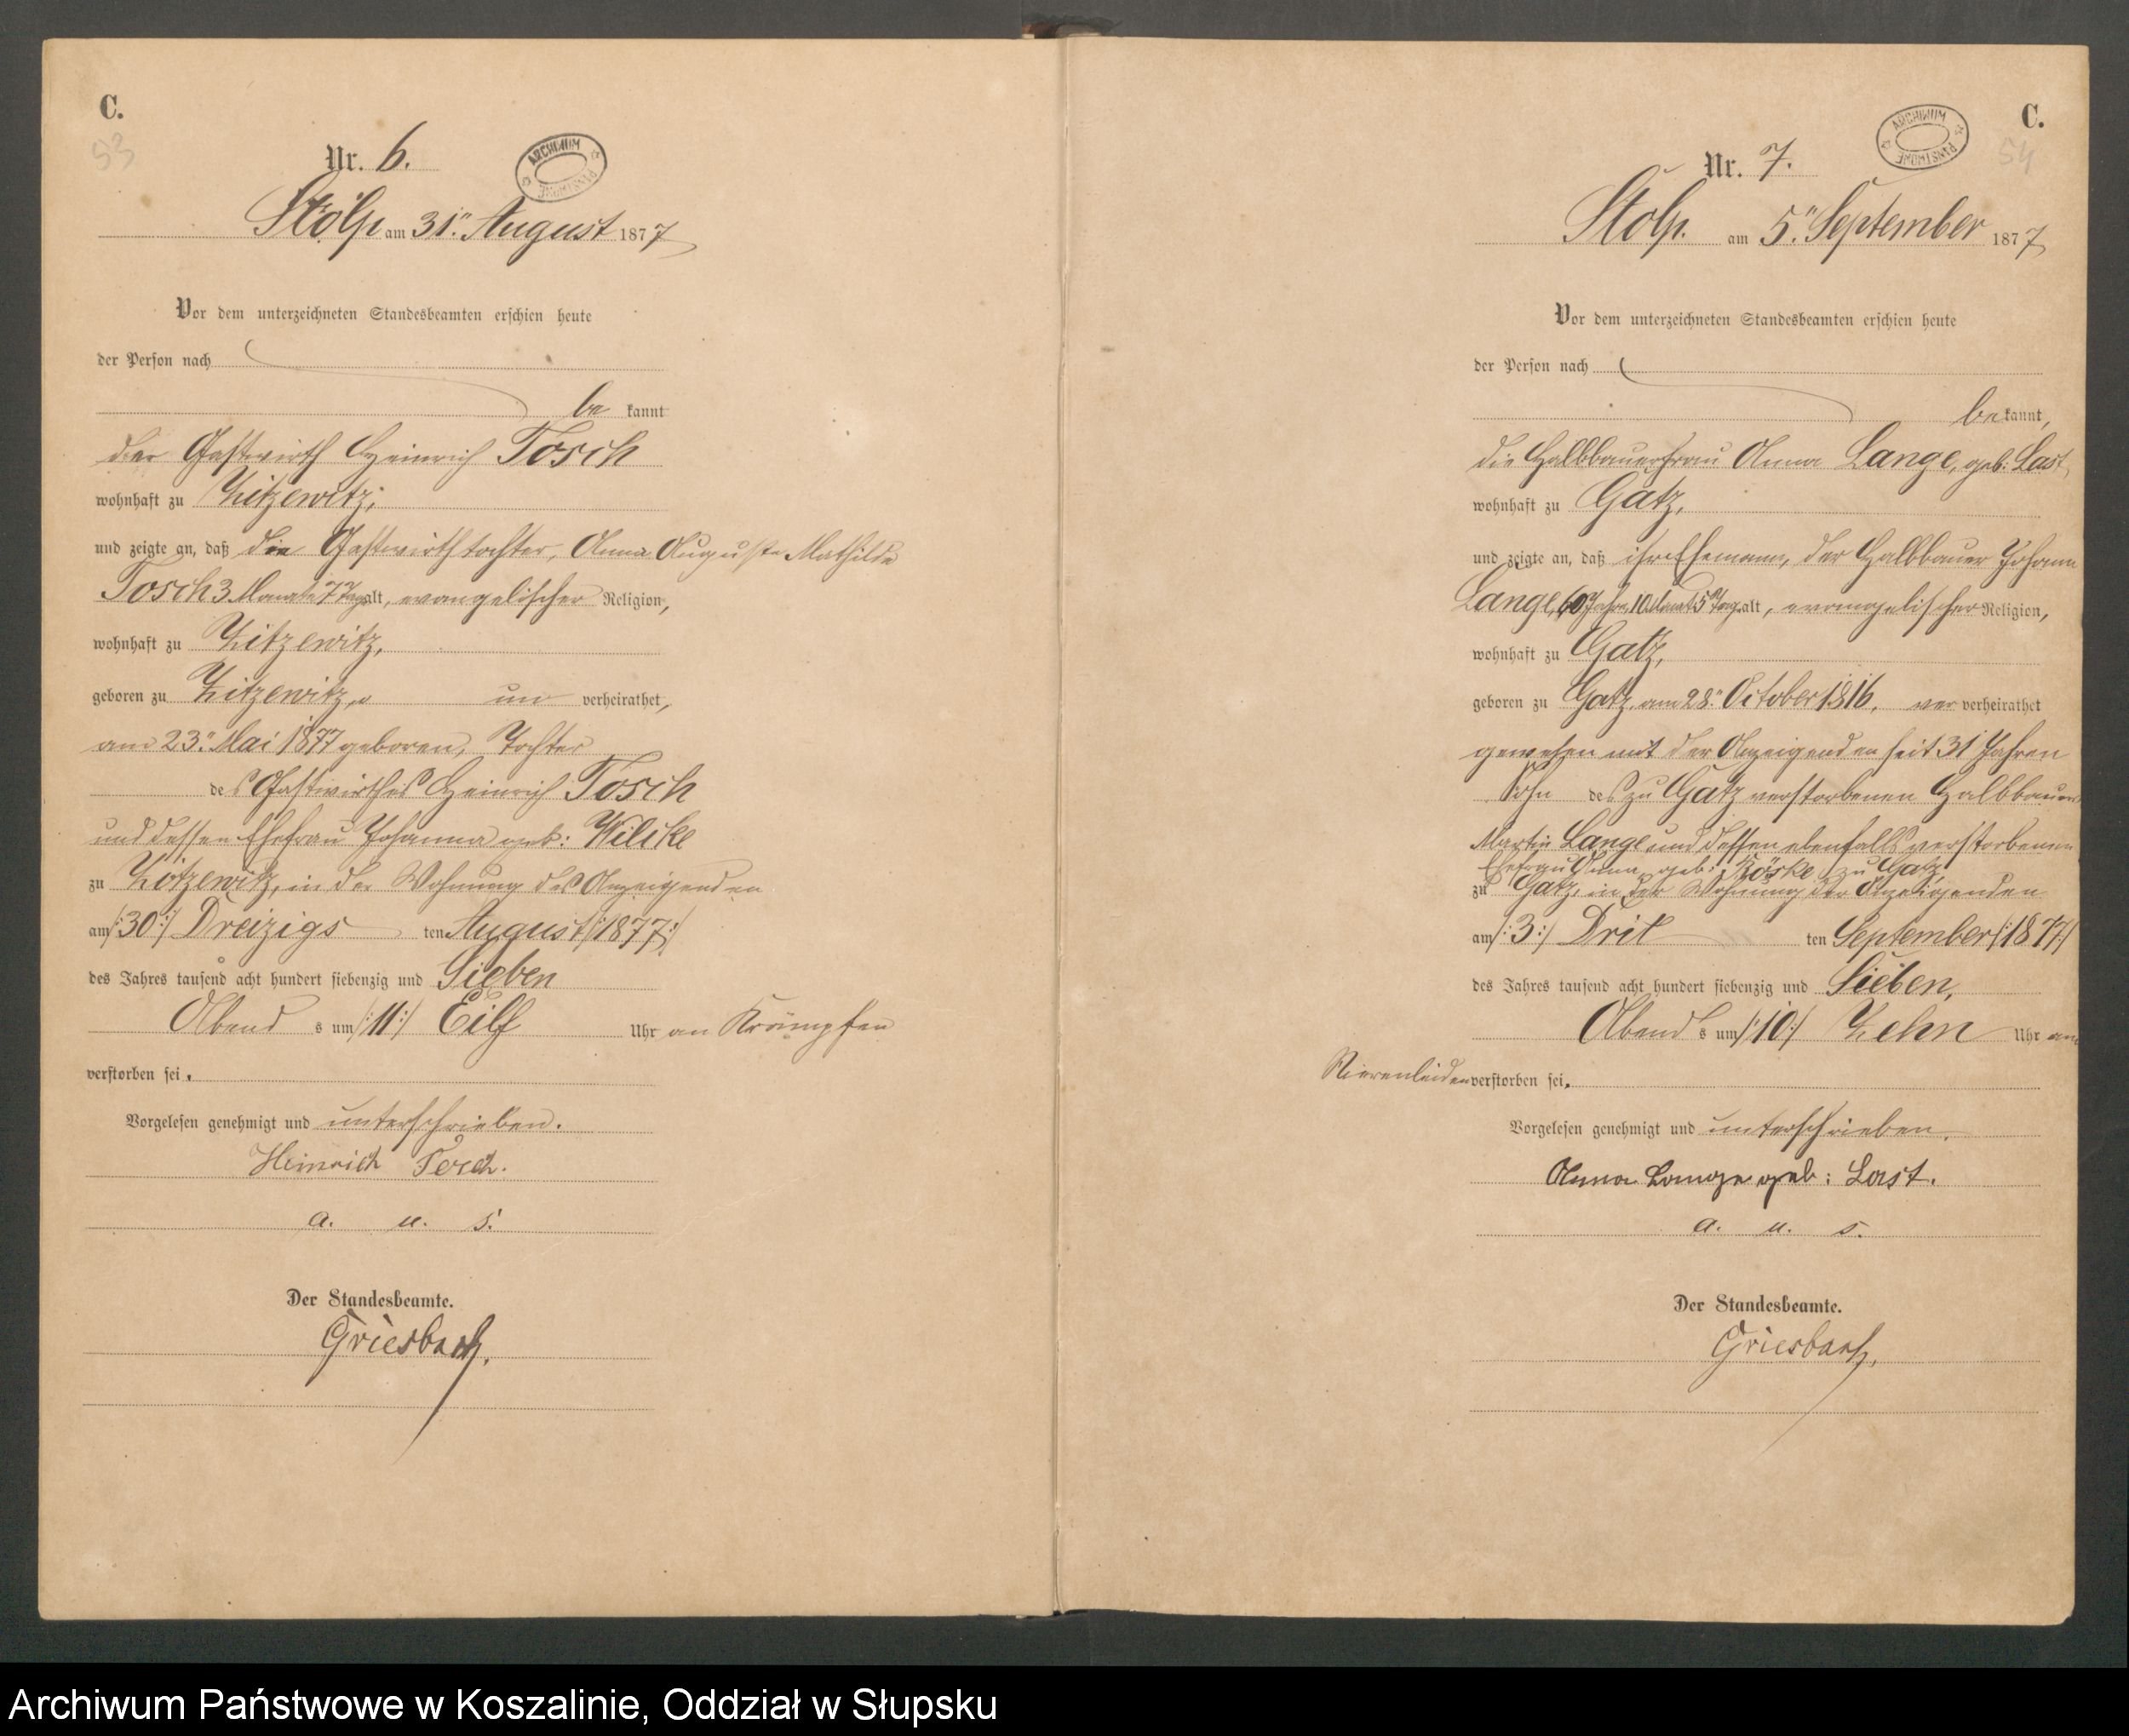 C.
53
Nr. 6.
ARCHIWUM PAŃSTWOWE
Stolp am 31ten August 1877
Vor dem unterzeichneten Standesbeamten erschien heute
der Person nach
be kannt
der Gastwirth Heinrich Tosch
wohnhaft zu Zitzewitz,
und zeigte an, daß die Gastwirthtochter, Anna Auguste Mathilde
Tosch 3 Monate 7 Tage alt, evangelischer Religion,
wohnhaft zu Zitzewitz,
geboren zu Zitzewitz, un verheirathet,
am 23ten Mai 1877 geboren, Tochter
des Gastwirthes Heinrich Tosch
und dessen Ehefrau Johanna geb: Wilcke
zu Zitzewitz, in der Wohnung des Anzeigenden
am /:30:/ Dreizigs ten August /:1877:/
des Jahres tausend acht hundert siebenzig und Sieben
Abend s um /:11:/ Eilf Uhr an Krämpfen
verstorben sei.
Vorgelesen genehmigt und unterschrieben.
Heinrich Tosch.
a. u. s.
Der Standesbeamte.
Griesbach.
C.
54
Nr. 7.
ARCHIWUM PAŃSTWOWE
Stolp. am 5ten September 1877
Vor dem unterzeichneten Standesbeamten erschien heute
der Person nach
be kannt,
die Halbbauerfrau Anna Lange, geb: Last,
wohnhaft zu Gatz,
und zeigte an, daß ihr Ehemann, der Halbbauer Johann
Lange, 60 Jahre, 10 Monat 5 Tage alt, evangelischer Religion,
wohnhaft zu Gatz,
geboren zu Gatz, am 28ten October 1816, ver verheirathet
gewesen mit der Anzeigenden seit 31 Jahren
Sohn des zu Gatz verstorbenen Halbbauer
Martin Lange und dessen ebenfalls verstorbenen
Ehefrau Anna, geb: Köske zu Gatz,
zu Gatz, in der Wohnung der Anzeigenden
am /:3:/ Drit ten September /:1877:/
des Jahres tausend acht hundert siebenzig und Sieben,
Abend s um /:10:/ Zehn Uhr am
Nierenleiden verstorben sei.
Vorgelesen genehmigt und unterschrieben.
Anna Lange geb: Last.
a. u. s.
Der Standesbeamte.
Griesbach.
Archiwum Państwowe w Koszalinie, Oddział w Słupsku